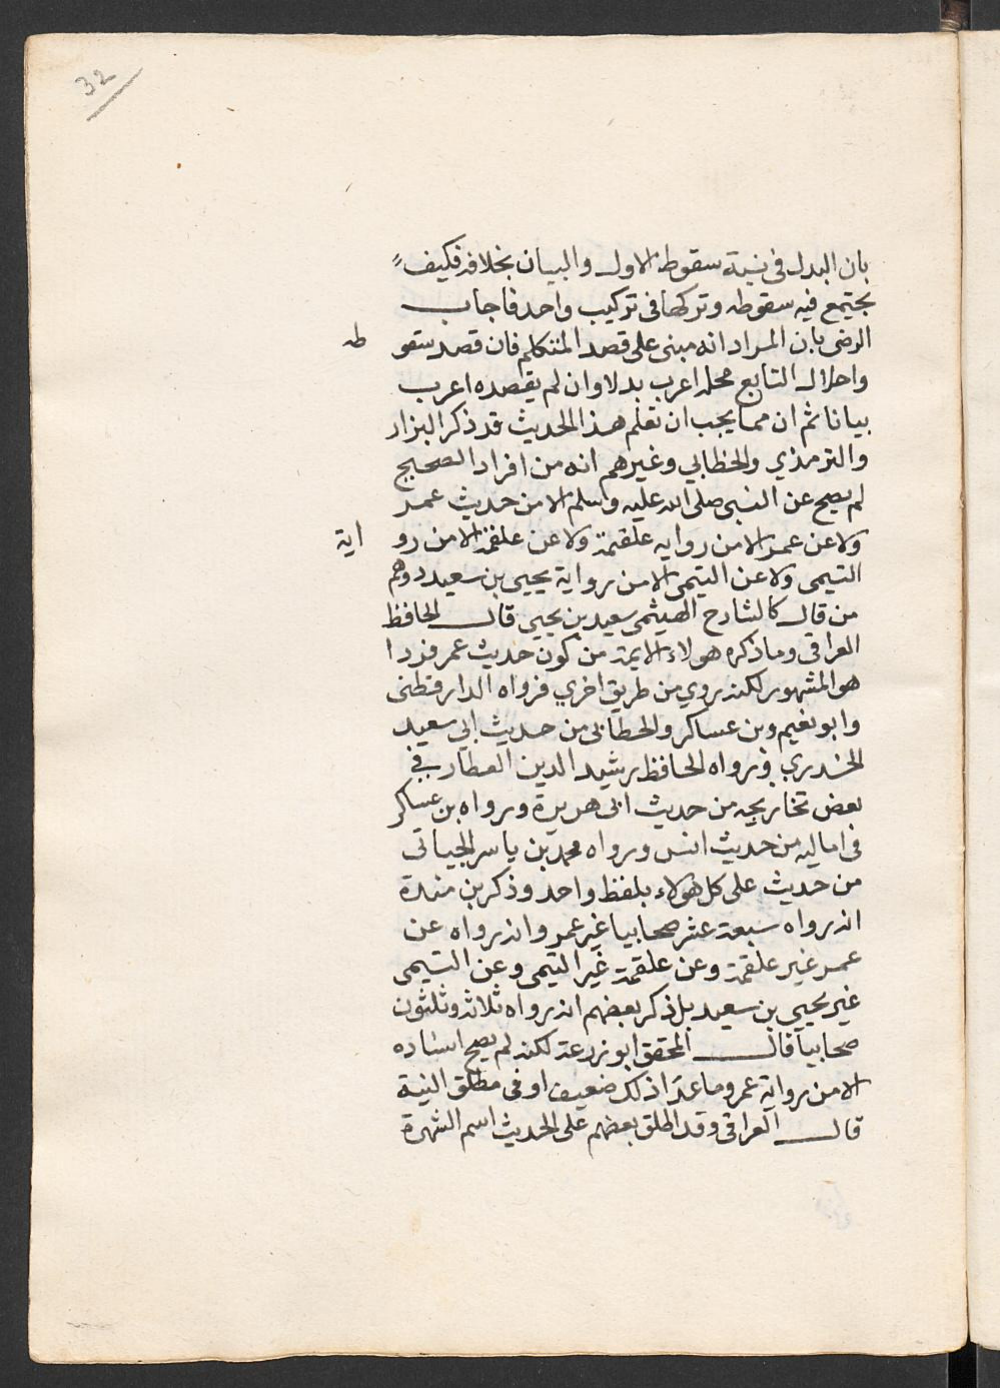 32
بان البدل في نية سقوط الاول والبيان بخلافه فكيف
يجتمع فيه سقوطه وتركها في تركيب واحد فاجاب
الرضى بان المراد انه مبنى على قصد المتكلم فان قصد سقو طه
واحلال التابع محله اعرب بدلا وان لم يقصده اعرب
بيانا ثم ان مما يجب ان تعلم هذا الحديث قد ذكر البزار
والترمذي والخطابي وغيرهم انه من افراد الصحيح
لم يصح عن النبي صلى الله عليه وسلم الا من حديث عمر
ولا عن عمر الا من رواية علقمة ولا عن علقمة الا من رو اية
التيمى ولا عن التيمى الا من رواية يحيى بن سعيد ووهم
من قال كالشارح الهيثمى سعيد بن يحيى قال الحافظ
العراقى وما ذكره هولاء الايمة من كون حديث عمر فردا
هو المشهور لكنه روي من طريق اخري فرواه الدارقطنى
وابو نعيم وبن عساكر والخطابى من حديث ابي سعيد
الخدري ورواه الحافظ رشيد الدين العطار في
بعض تخاريجه من حديث ابى هريرة ورواه بن عساكر
فى اماليه من حديث انس ورواه محمد بن ياسر الجيانى
من حديث على كل هولاء بلفظ واحد وذكر بن مندة
انه رواه سبعة عشر صحابيا غير عمر وانه رواه عن
عمر غير علقمة وعن علقمة غير التيمى وعن التيمى
غير يحيى بن سعيد بل ذكر بعضهم انه رواه ثلاثة وثلثون
صحابيا قال المحقق ابو زرعة لكنه لم يصح اسناده
الا من رواية عمر وما عدا ذلك ضعيف او فى مطلق النية
قال العراقى وقد اطلق بعضهم على الحديث اسم الشهرة